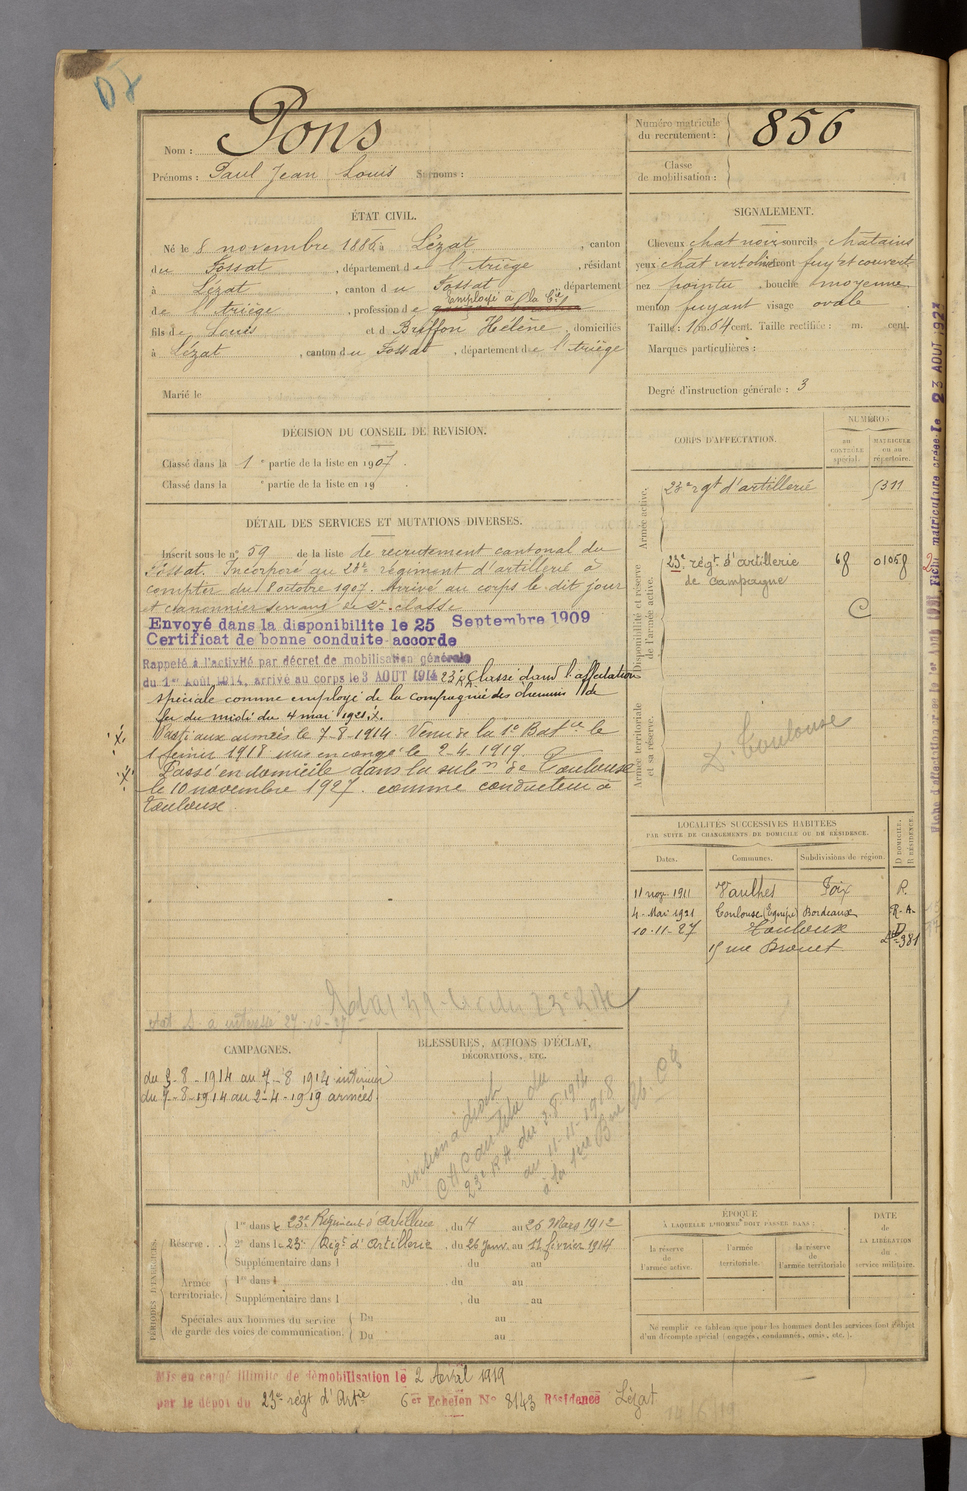 Nom : Pons
Prénoms : Paul Jean Louis Surnoms :
Numéro matricule
du recrutement : 856
Classe
de mobilisation :
ÉTAT CIVIL.
Né le 8 novembre 1886, à Lézat , canton
du Fossat , département de l'Ariège , résidant
à Lézat , canton du Fossat , département
Employé à la Cie
de l'Ariège , profession de
fils de Louis et d Briffon Hélène , domiciliés
à Lézat , canton du Fossat , département de l'Ariège
Marié le
SIGNALEMENT.
Cheveux chat noir sourcils châtains
yeux chat vert front fuyt et couvert
nez pointu , bouche moyenne
menton fuyant visage ovale
Taille : 1 m. 64 cent. Taille rectifiée : m. cent.
Marques particulières :
Degré d'instruction générale : 3
DÉCISION DU CONSEIL DE REVISION.
Classé dans la 1e partie de la liste en 1907 .
Classé dans la e partie de la liste en 19 .
CORPS D'AFFECTATION.
NUMÉROS
AU CONTRÔLE spécial.
MATRICULE ou au répertoire.
Armée active.
23e rgt d'artillerie 311
Disponibilité et réserve de l'armée active.
23e régt d'artillerie 68 01058
de campagne
C
Armée territoriale et sa réserve.
D. Toulouse
DÉTAIL DES SERVICES ET MUTATIONS DIVERSES.
Inscrit sous le n° 59 de la liste de recrutement cantonal du
Fossat. Incorporé au 23e régiment d'artillerie à
compter du 8 octobre 1907. Arrivé au corps le dit jour
et canonnier servant de 2e classe
Envoyé dans la disponibilite le 25 Septembre 1909
Certificat de bonne conduite accorde
Rappelé à l'activité par décret de mobilisation générale
du 1er Août 1914, arrivé au corps le 3 AOUT 1914 23e RA Classé dans l'affectation
spéciale comme employé de la compagnie des chemins de
fer du midi du 4 mai 1921.
Parti aux armées le 7-8-1914. Venu de la 1e Batie le
1 février 1918 mis en congé le 2-4-1919.
Passé en domicile dans la subon de Toulouse
le 10 novembre 1927. comme conducteur à
Toulouse.
LOCALITÉS SUCCESSIVES HABITÉES
PAR SUITE DE CHANGEMENTS DE DOMICILE OU DE RÉSIDENCE.
Dates. Communes. Subdivisions de région. D DOMICILE. R RÉSIDENCE.
11 nov. 1911 Vaulhes Foix R.
4- Mai 1921 Toulouse (Equipe) Bordeaux R.A.
10-11-27 Toulouse D
15 rue Brouet 981
CAMPAGNES.
du 3-8-1914 au 7-8 1914 intérieur
du 7-8-1914 au 2-4-1919 armées.
BLESSURES, ACTIONS D'ÉCLAT,
DÉCORATIONS, ETC.
23e RA du 3.8.1914
au 11-11-1918
PÉRIODES D'EXERCICES.
Réserve . . 1re dans le 23e Régiment d'Artillerie , du 4 au 26 Mars 1912
2e dans le 23e Régt d'Artillerie , du 26 Janv. au 11 février 1914
Supplémentaire dans l du au
Armée territoriale. 1re dans l du au
Supplémentaire dans l , du au
Spéciales aux hommes du service Du au
de garde des voies de communication. Du au
ÉPOQUE
À LAQUELLE L'HOMME DOIT PASSER DANS :
la réserve de l'armée active.
l'armée territoriale.
la réserve de l'armée territoriale
DATE
de
LA LIBÉRATION
du
service militaire.
Ne remplir ce tableau que pour les hommes dont les services font l'objet
d'un décompte spécial (engagés, condamnés, omis, etc.).
Mis en congé illimité de démobilisation le 2 Avril 1919
par le dépôt du 23e régt d'Artie 6er Echelon No 8143 Résidence Lézat